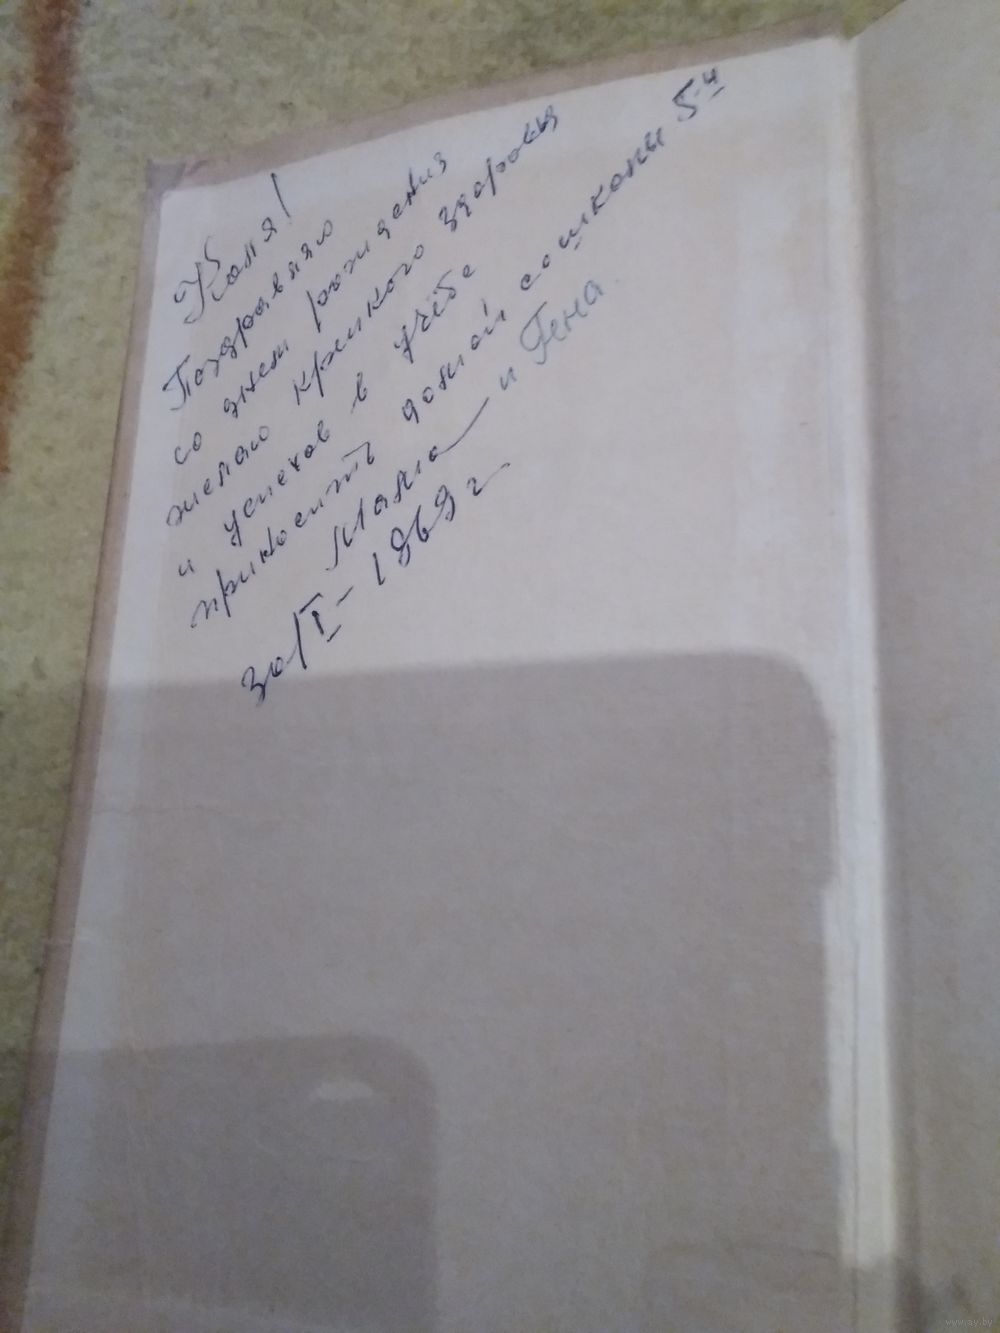 Коля!
Поздравляю
со днем рождения
желаю крепкого здоровья
и успехов в учёбе
приносить домой со школы 5-ч
Мама и Гена.
30/I-1969 г
www.ay.by